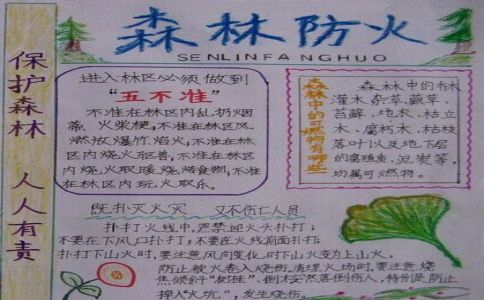 森林防火
SENLINFANGHUO
保护森林 人人有责
进入林区必须做到
"五不准"
不准在林区内乱扔烟
蒂、火柴梗,不准在林区
燃放爆竹、焰火,不准在林
区内烧火驱兽,不准在林
区内烧火取暖、烧烤食物,不准
在林区内玩火取乐。
森林中的可燃物有哪些
森林中的
灌木、杂草、蕨草、
苔藓、地衣、枯立
木、腐朽木、枯枝
落叶以及地下层
的腐殖质、泥炭等,
均属可燃物。
既扑灭火灾 又不伤亡人员
扑打火线中,严禁迎火头扑打;
不要在下风口扑打;不要在火线前面扑打;
扑打下山火时,要注意风向变化,时下山火变为上山火,
防止被火卷入烧伤。清理火场时,要注意烧
焦倾斜"树挂"、倒木突落倒伤人,特别是防止
掉入"火坑",发生烧伤。